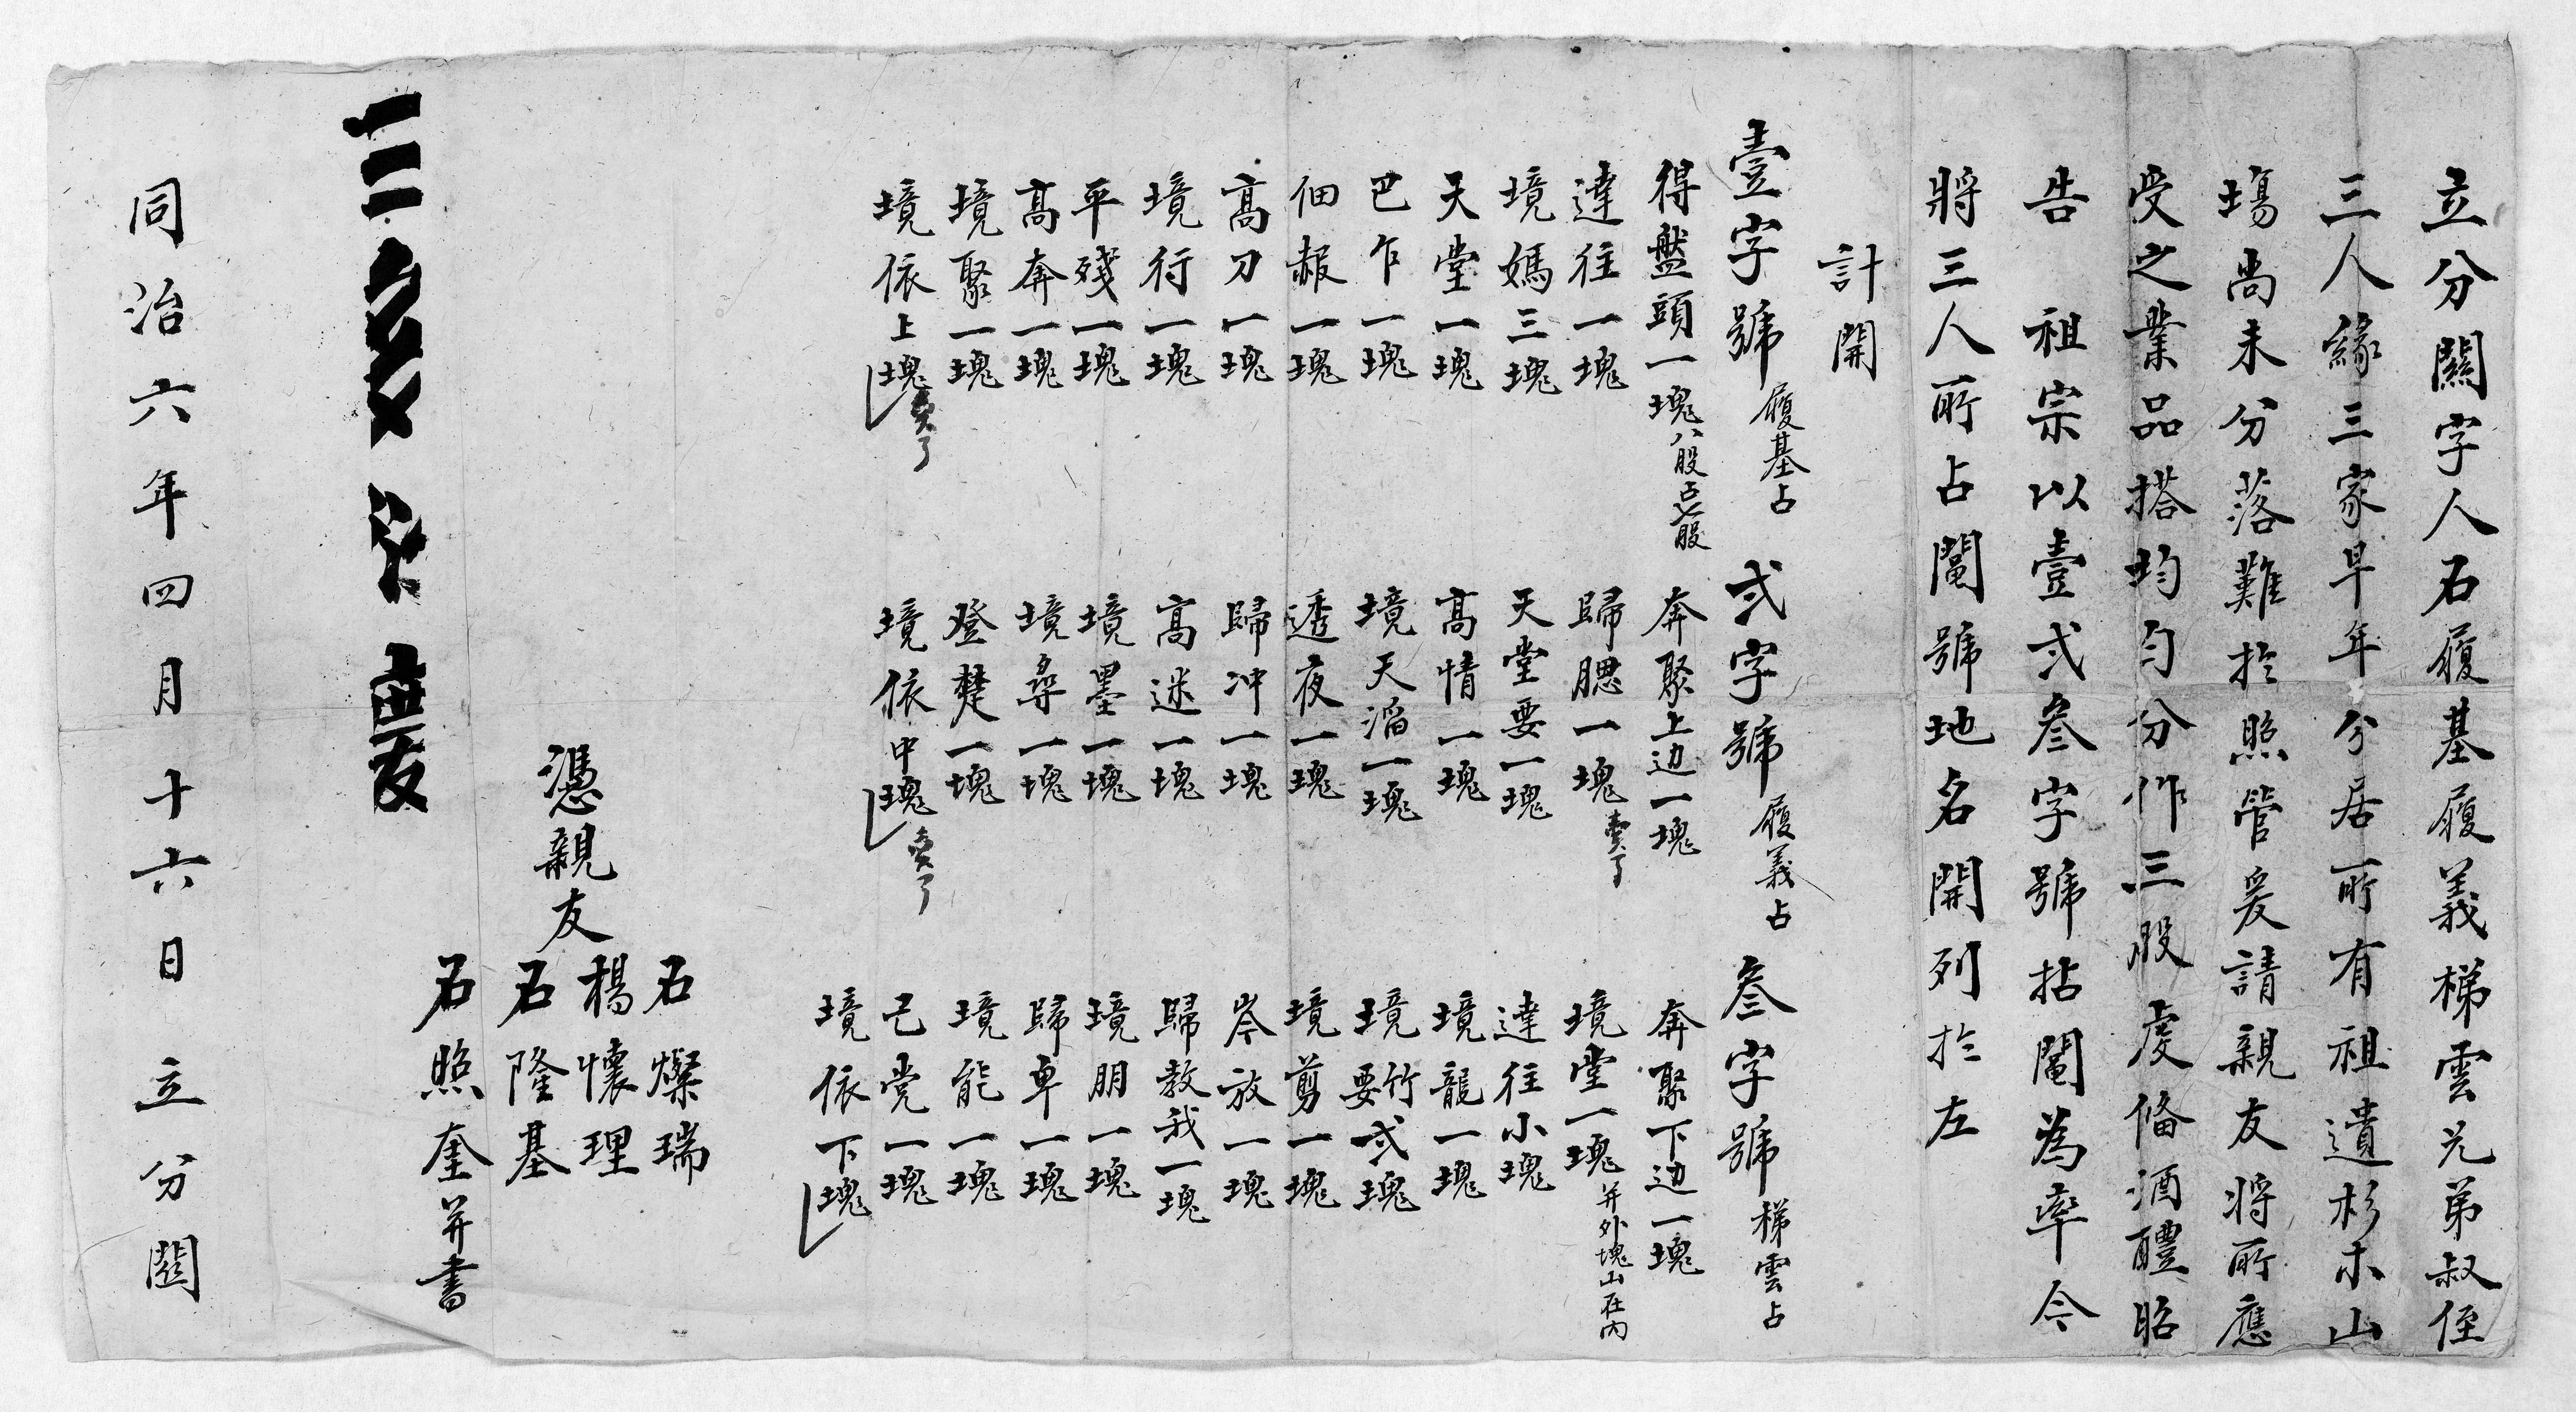 立分關字人石履基履義梯雲兄弟叔侄
三人緣三家早年分居所有祖遺杉木山
塲尚未分落難於照管爰請親友將所應
受之業品搭均勻分作三股虔俻酒醴昭
告　祖宗以壹弍叁字號拈鬮為率今
將三人所占鬮號地名開列於左
計開
壹字號　履基占
得盤頭一塊　八股占七股
達往一塊
境媽三塊
天堂一塊
巴乍一塊
佃赧一塊
高刀一塊
境行一塊
平殘一塊
高奔一塊
境聚一塊
境依上塊　賣了
弍字號　履義占
奔聚上边一塊
歸腮一塊　賣了
天堂要一塊
高情一塊
境天滔一塊
透夜一塊
歸冲一塊
高迷一塊
境墨一塊
境尋一塊
登楚一塊
境依中塊　賣了
叁字號　梯雲占
奔聚下边一塊
境堂一塊　并外塊山在內
達往小塊
境龍一塊
境要竹弍塊
境剪一塊
岑放一塊
歸教我一塊
境朋一塊
歸卑一塊
境能一塊
已党一塊
境依下塊
憑親友
石燦瑞
楊懷理
石隆基
石照奎并書
同治六年四月十六日　立分關